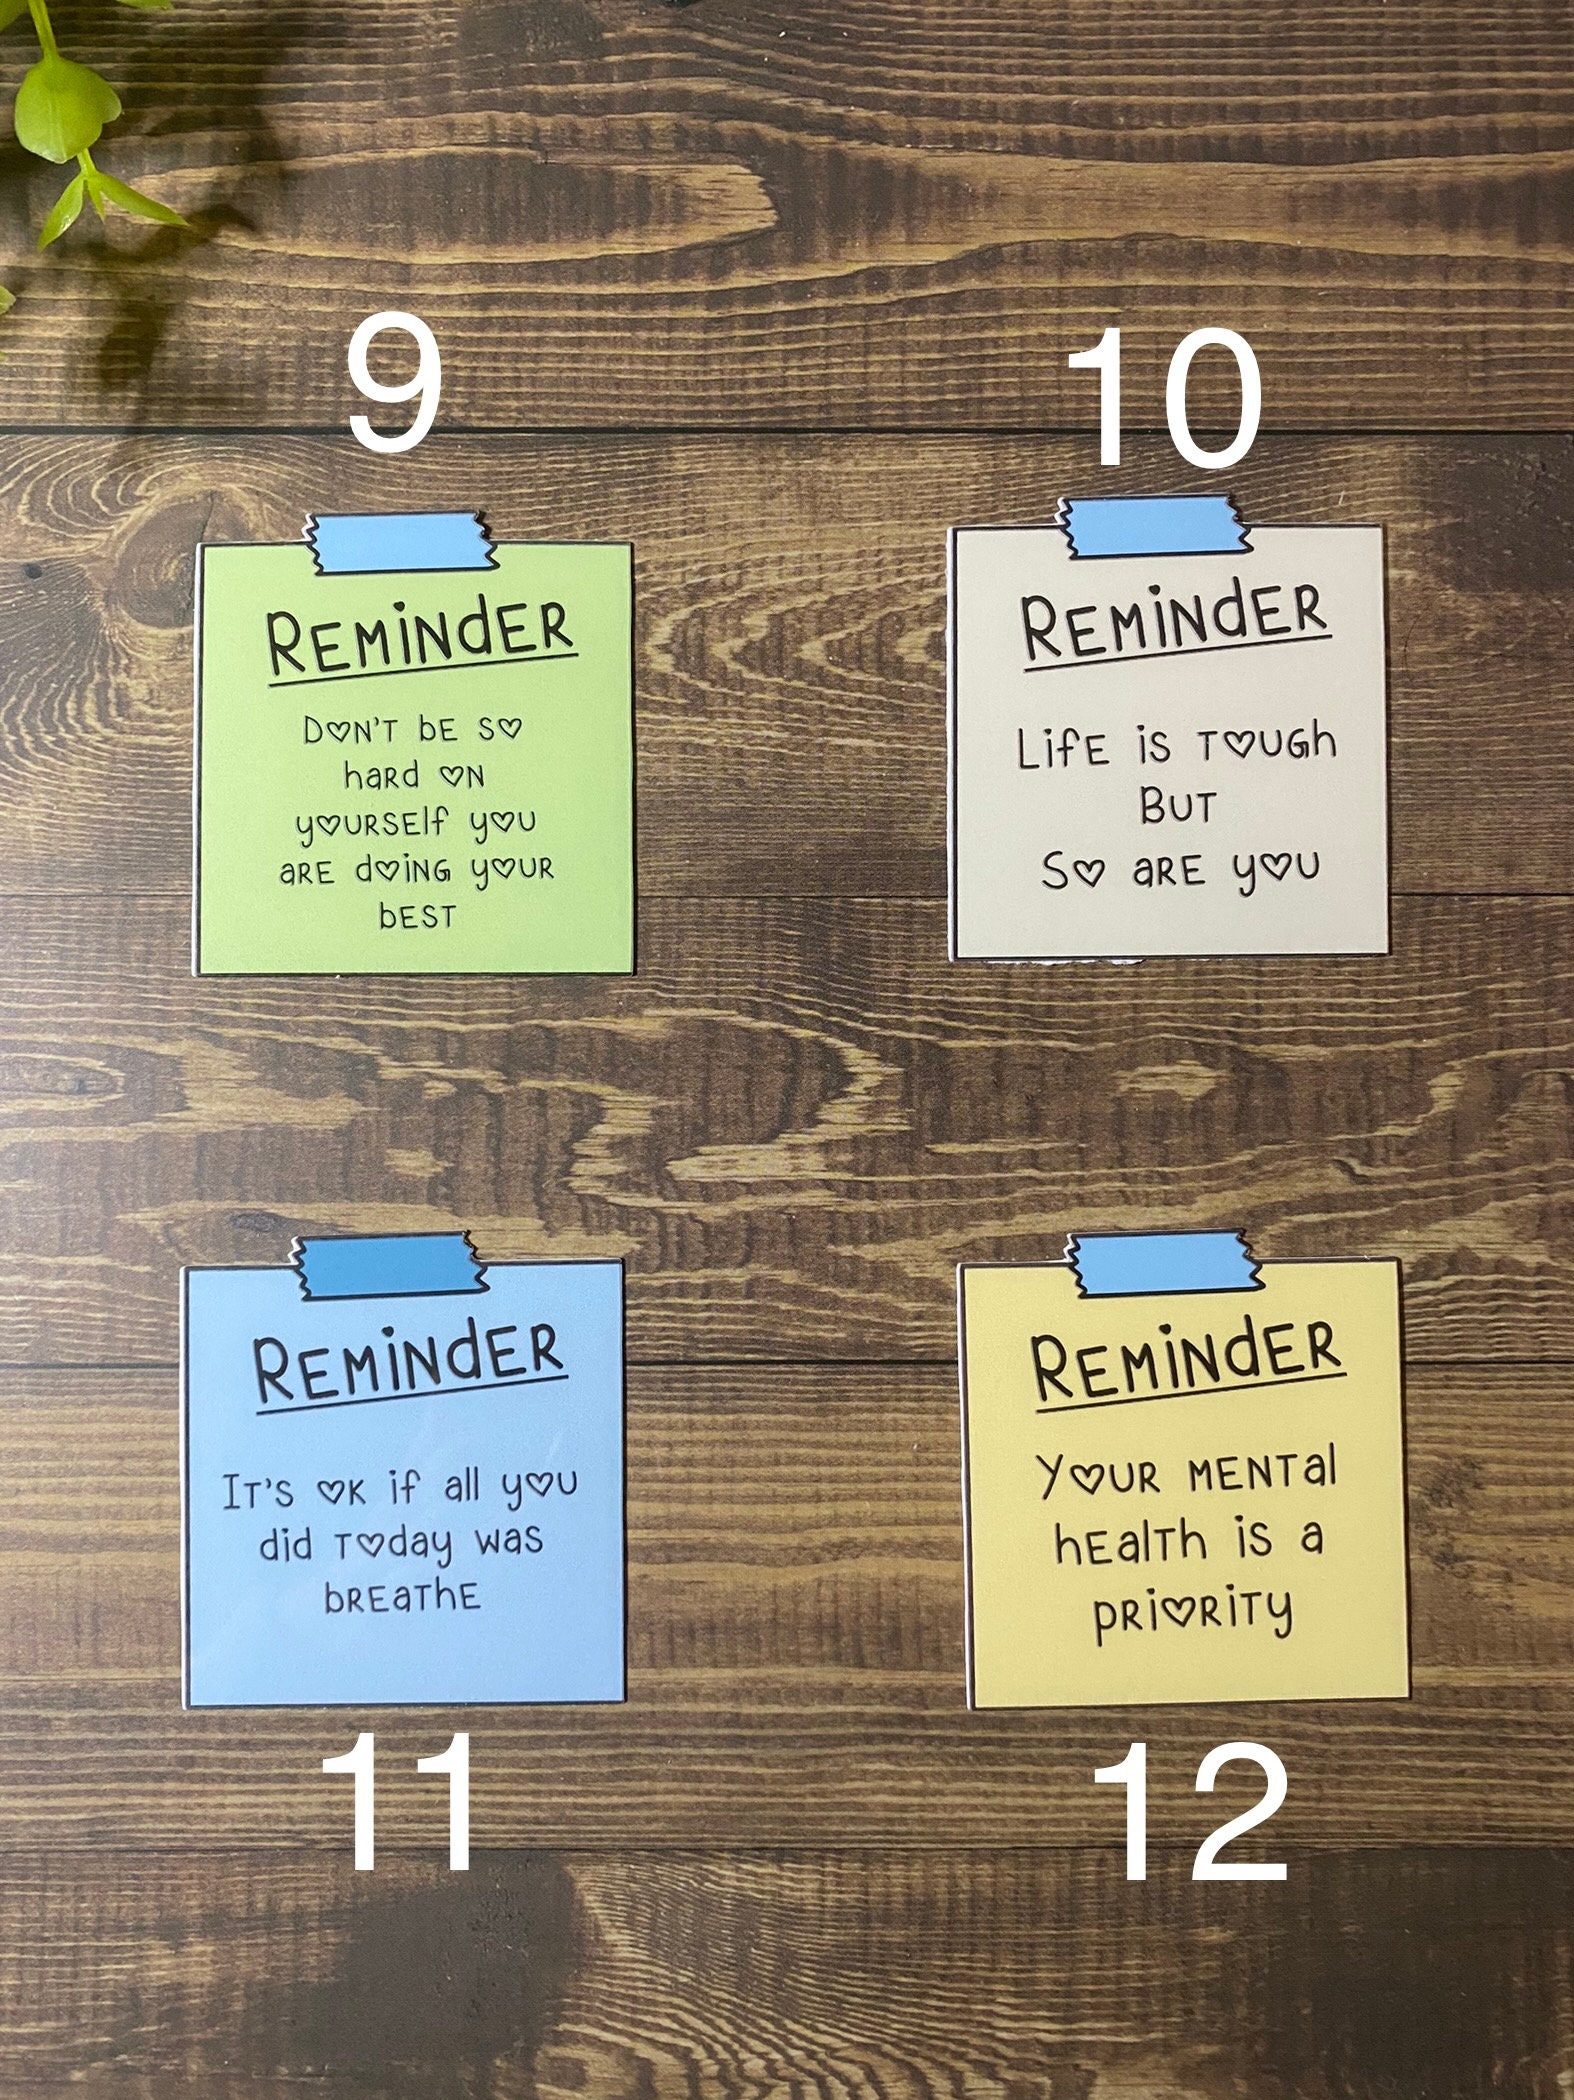 9
10
REMiNdER
DON'T bE SO
haRd ON
yOURSElf yOU
aRE dOiNG yOUR
bEST
REMiNdER
LifE iS TOUGh
BUT
SO aRE yOU
REMiNdER
IT'S OK if all yOU
did TOday waS
bREaThE
REMiNdER
YOUR MENTal
hEalTh iS a
pRiORiTy
11
12